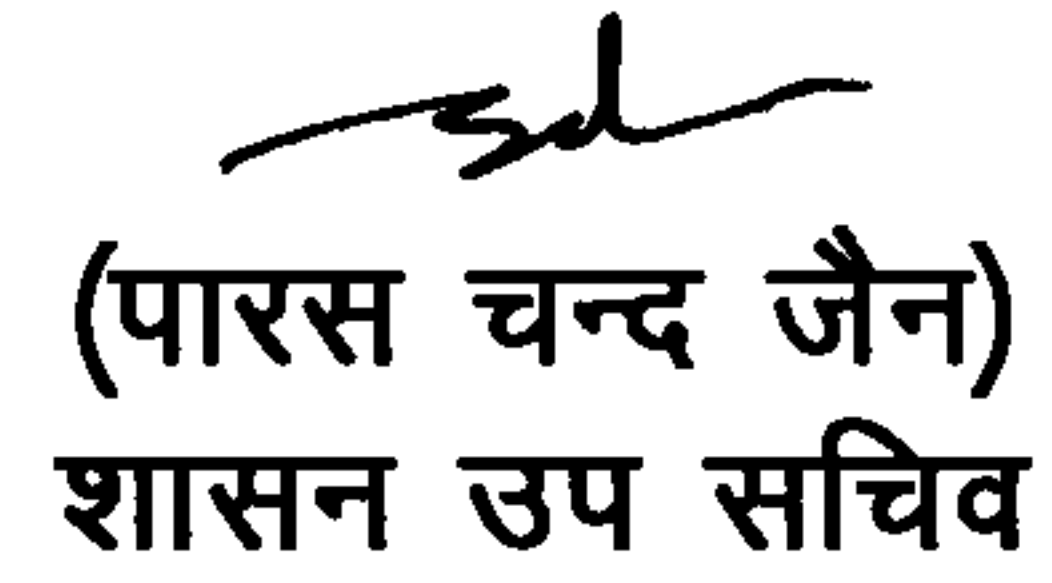 sd
(पारस चन्द जैन)
शासन उप सचिव